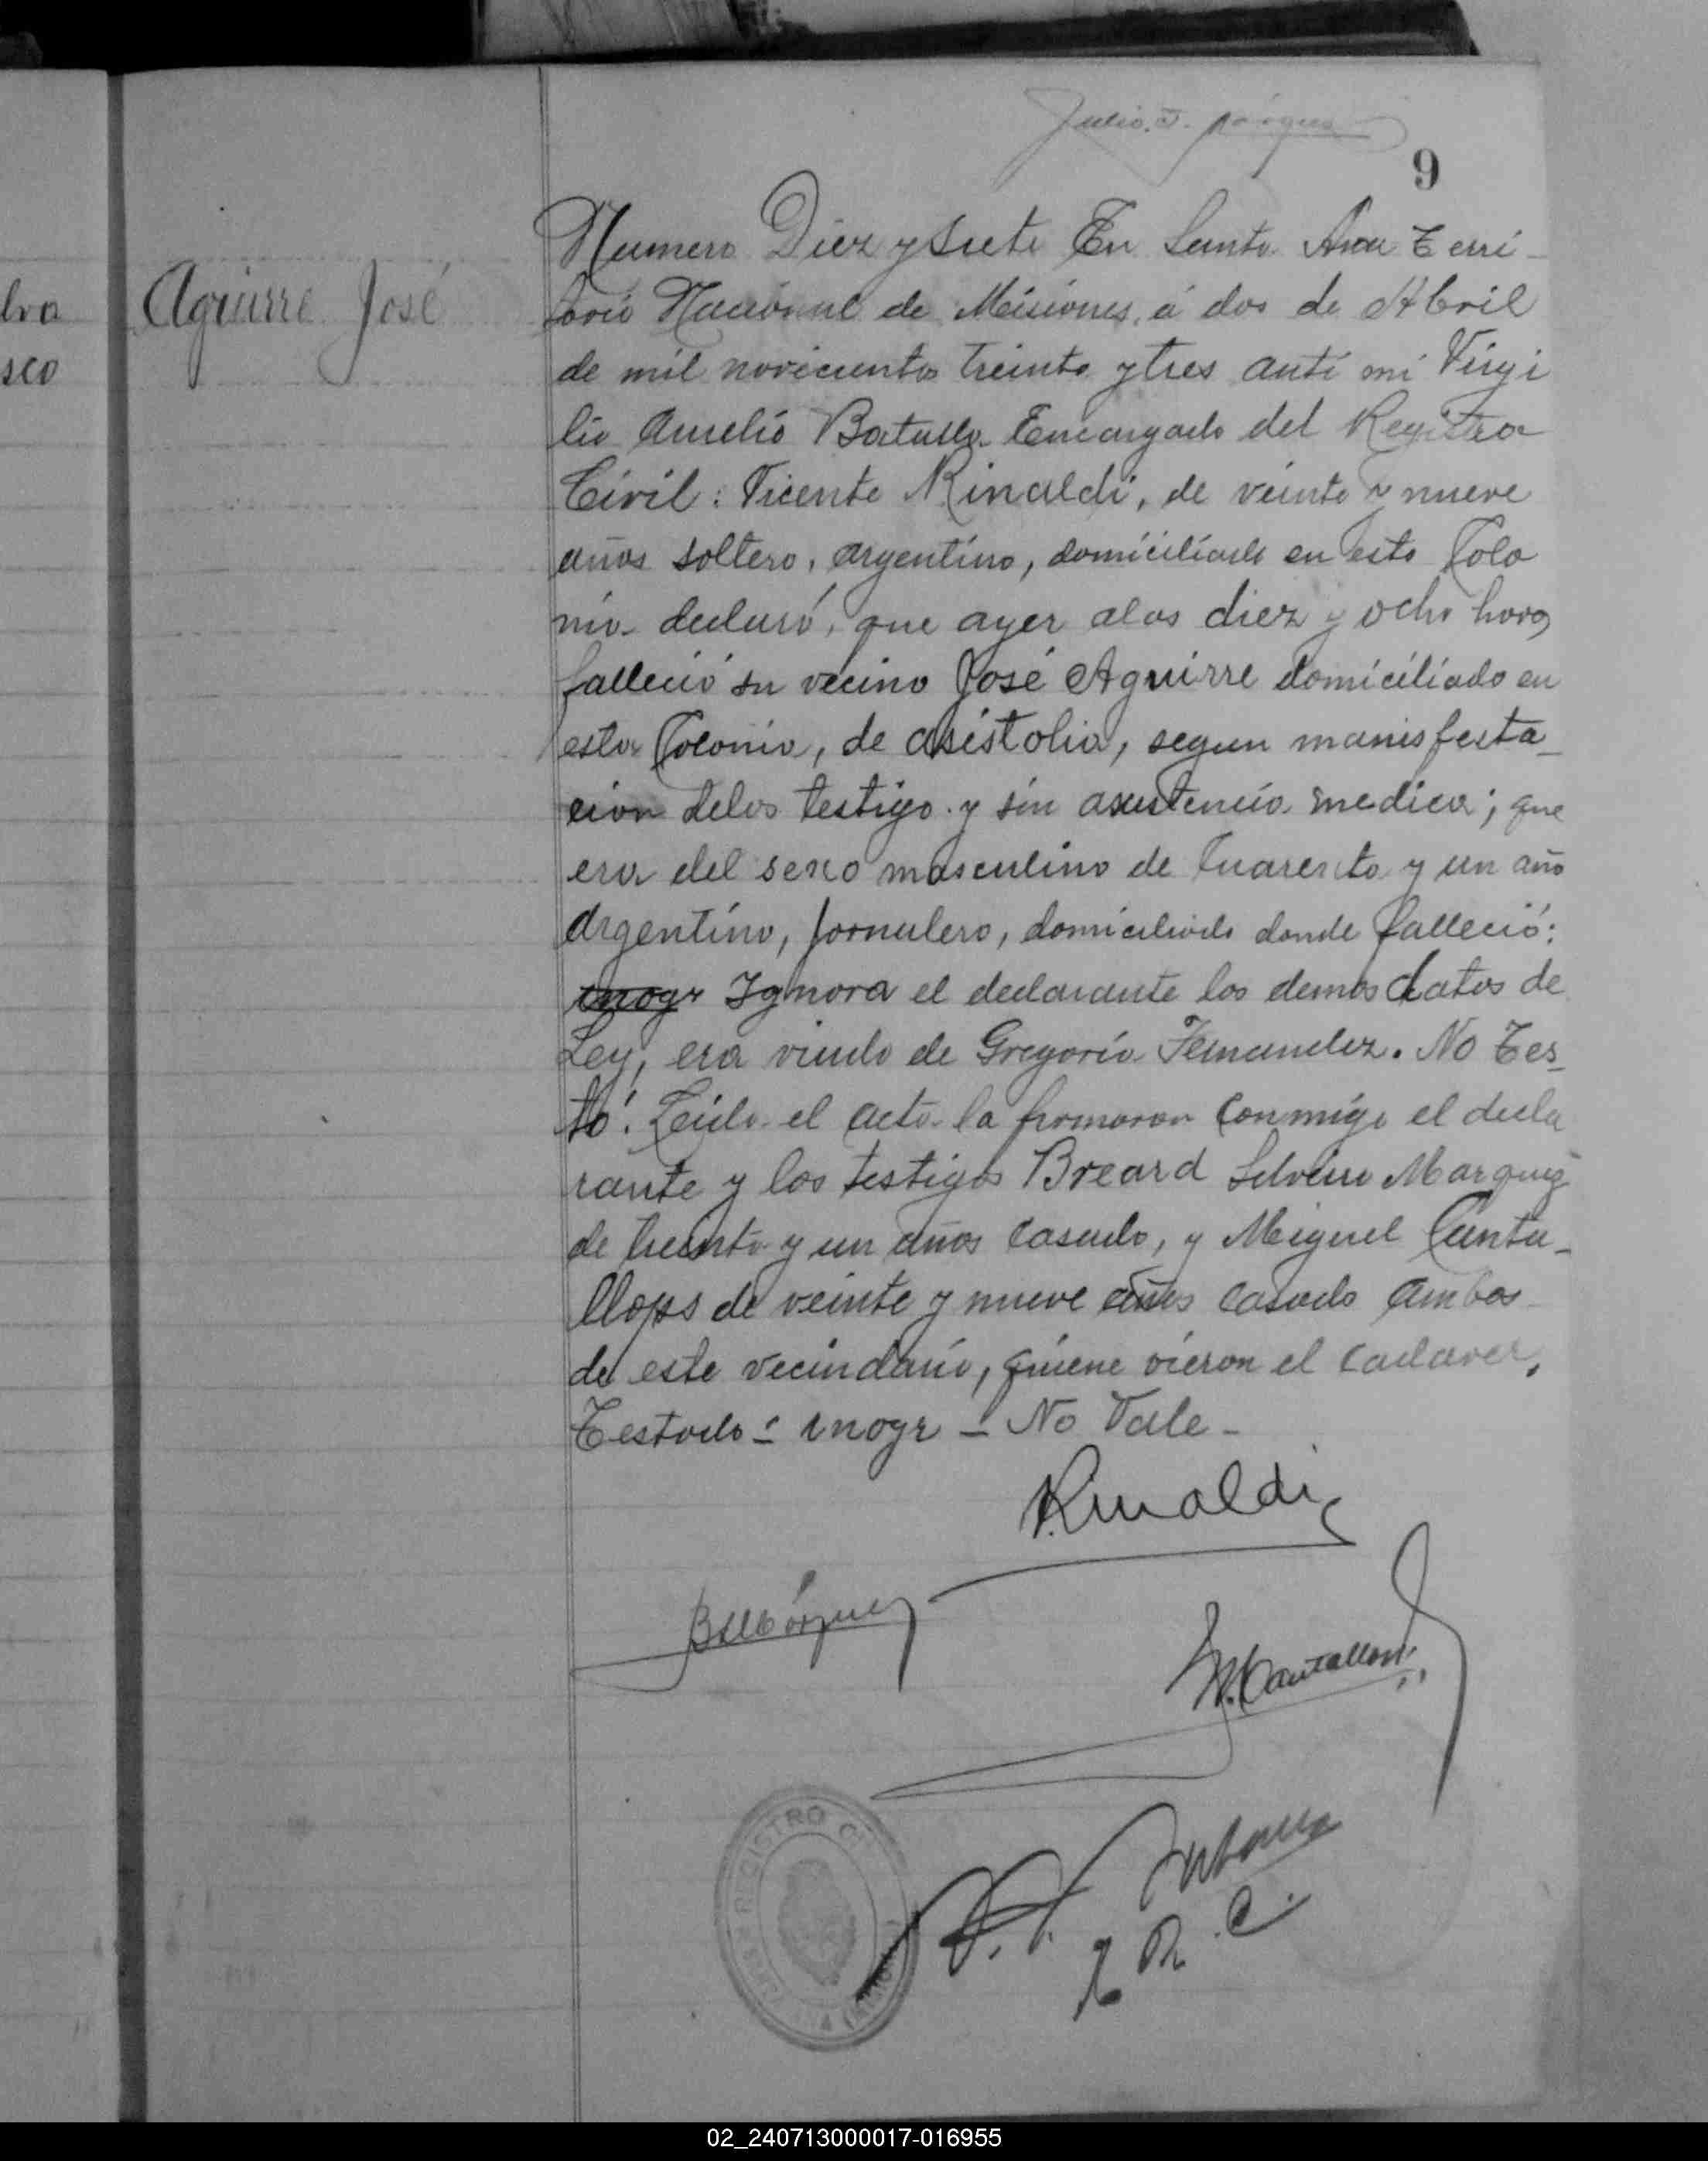 Julio. J.
9
lva
sco
Aguirre José
Numero Diez y siete En Santa Ana Terri-
torio Nacional de Misiones, á dos de Abril
de mil novecientos treinta y tres anti mi Virgi
lio Aurelio Batalla Encargado del Registro
Civil: Vicente Rinaldi, de veinte y nueve
años soltero, argentino, domiciliado en esta Colo
nia declaró, que ayer alas diez y ocho horas
falleció su vecino José Aguirre domiciliado en
esta Colonia, de asistolia, segun manisfesta-
cion delos testigo y sin asistencia medica; que
era del sexo masculino de Cuarenta y un año
Argentino, Jornalero, domiciliado donde falleció:
inogr Ignora el declarante los demas datos de
Ley, era viudo de Gregoria Fernandez. No Tes-
tó! Leida el acta la firmaron conmigo el decla
rante y los testigos Breard Silveiro Marquez
de treinta y un años casado, y Miguel Canta-
llops de veinte y nueve años casado ambos
de este vecindario, quiene vieron el cadaver.
Testado = inogr = No Vale -
V. Rinaldi
BSMárquez
M. Cantallops
REGISTRO CIVIL
V. A. Batalla
E R. C.
02_240713000017-016955